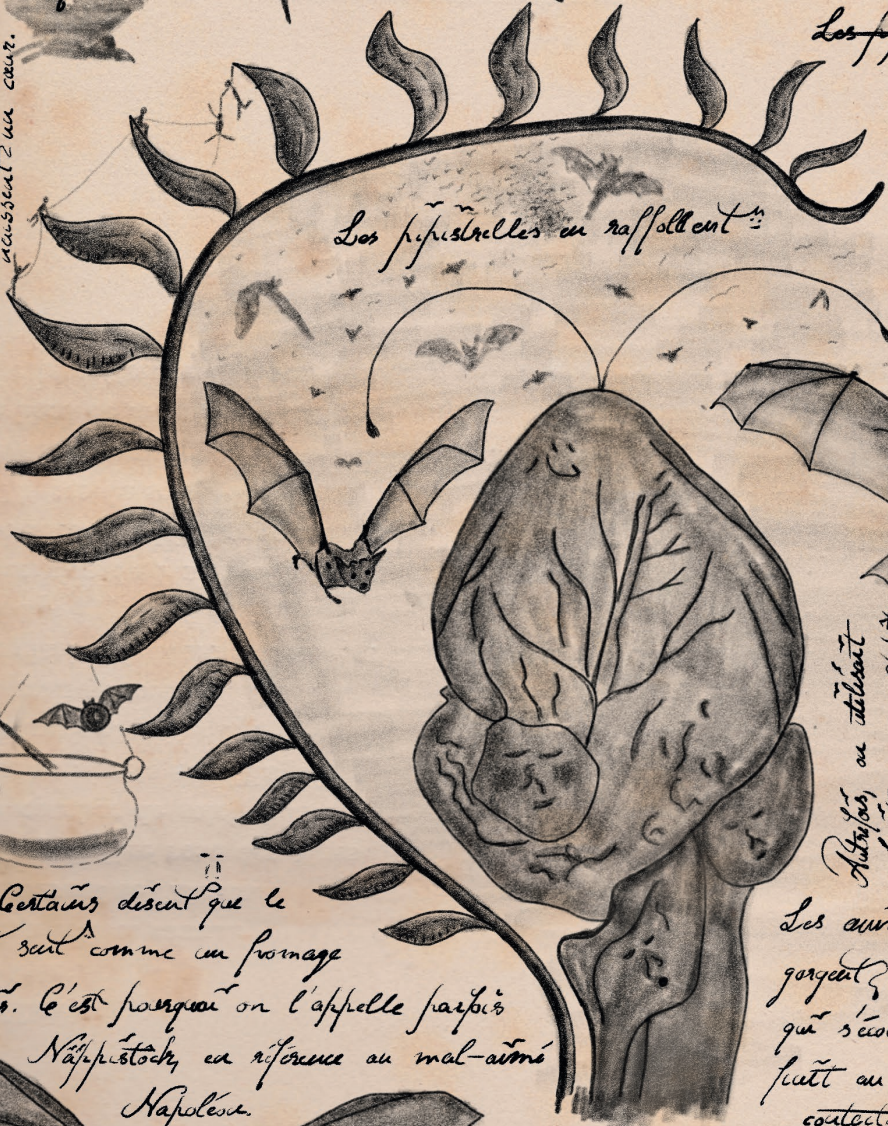 naissent d'un cœur.
Les
Les pipistrelles en raffollent
Autrefois, en utilisant
Certains disent que le
sent comme un fromage
C'est pourquoi on l'appelle parfois
Nappistock, en référence au mal-aimé
Napoléon.
Les
gorgent
qui
fuit au